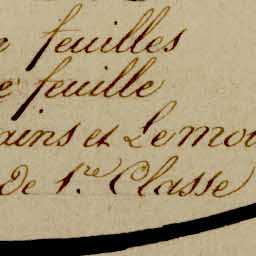 n feuilles
e feuille
ains et Lemoi
de 1.re Classe